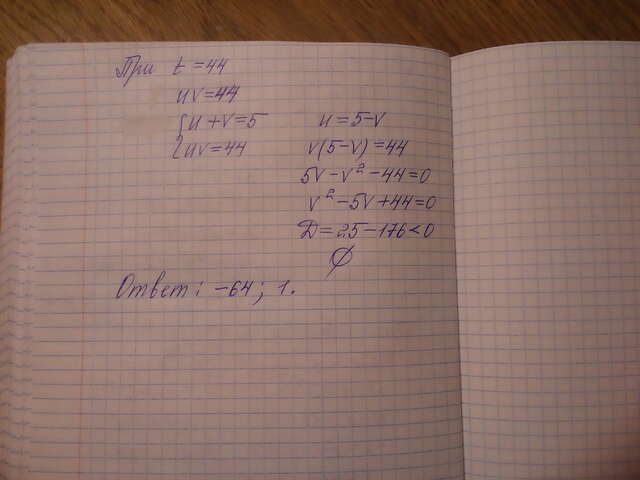 При t=44
uv=44
{u+v=5 u=5-v
uv=44 v(5-v)=44
5v-v²-44=0
v²-5v+44=0
D=25-176<0
∅
Ответ: -64; 1.